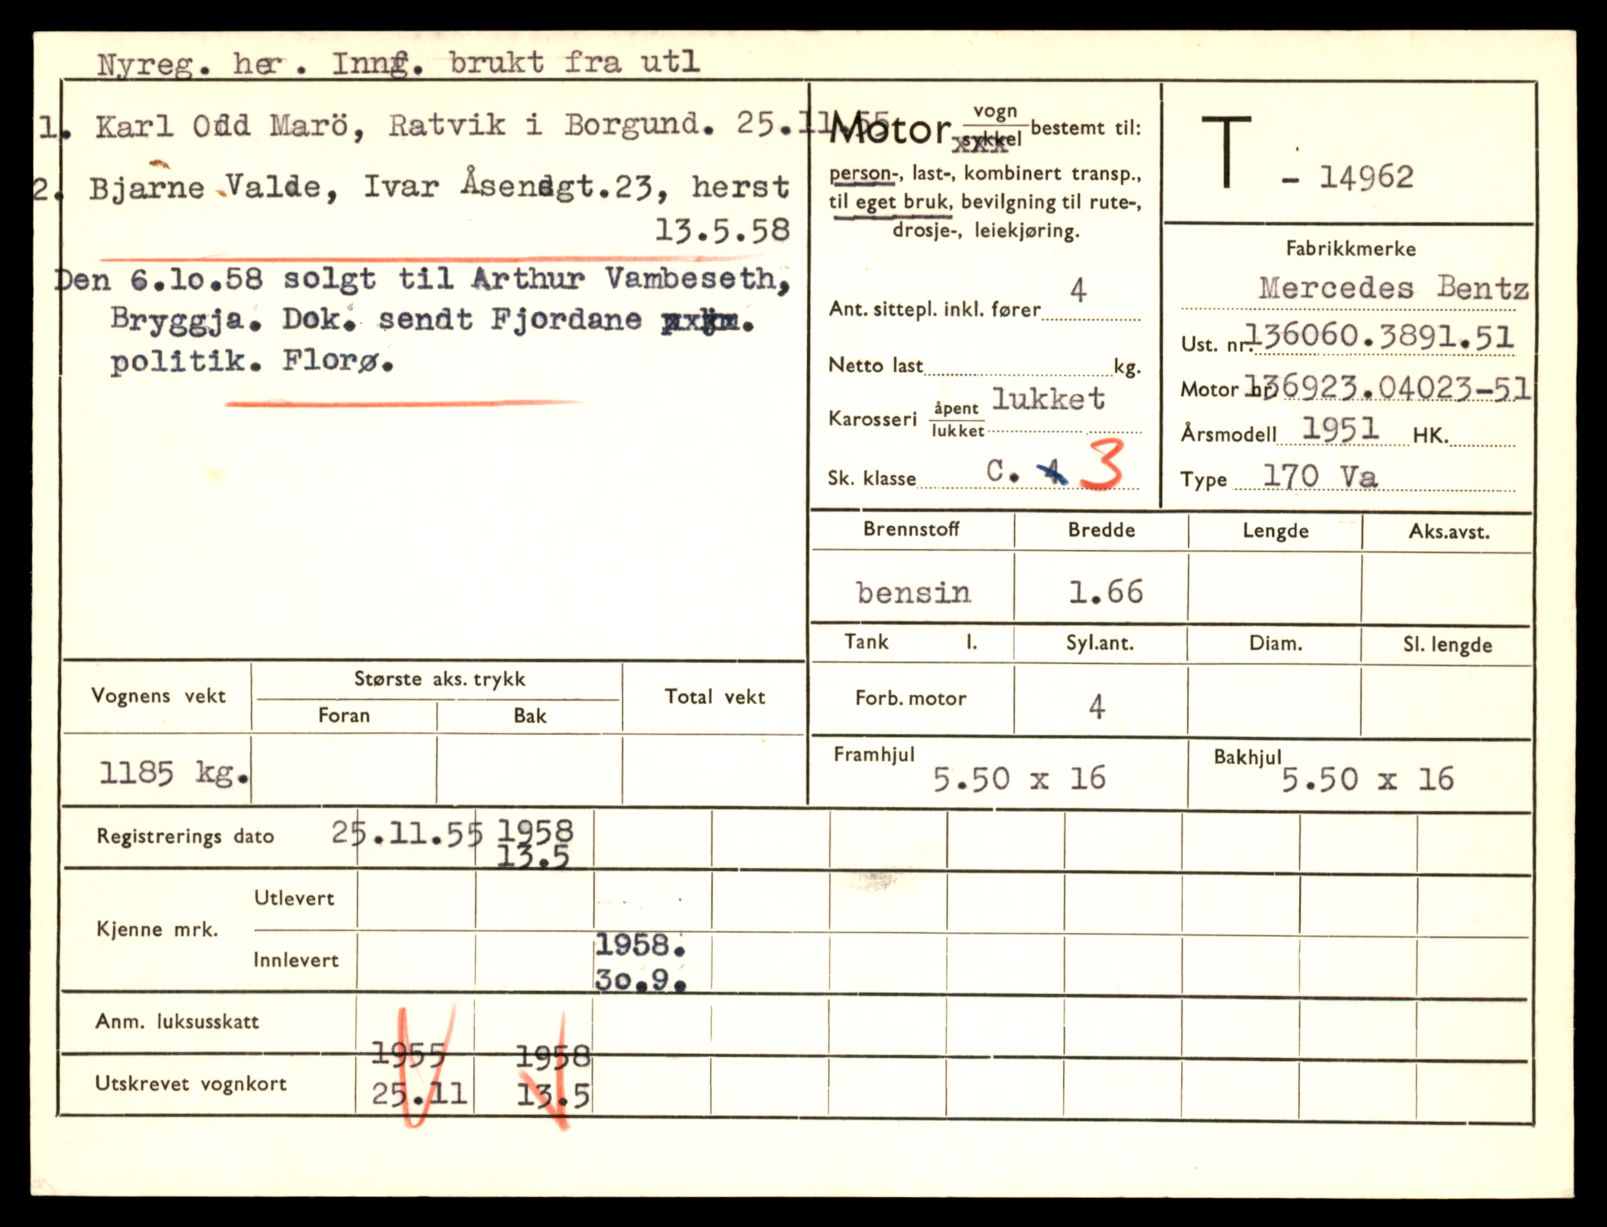 Nyreg. her. Innf. brukt fra utl
1. Karl Odd Marö, Ratvik i Borgund. 25.11.55
2. Bjarne Valde, Ivar Åsensgt.23, herst
13.5.58
Den 6.10.58 solgt til Arthur Vambeseth,
Bryggja. Dok. sendt Fjordane
politik. Florø.
Motor vogn sykkel bestemt til:
person-, last-, kombinert transp.,
til eget bruk, bevilgning til rute-,
drosje-, leiekjøring.
Ant. sittepl. inkl. fører 4
Netto last kg.
Karosseri åpent lukket lukket
Sk. klasse C. 4 3
T - 14962
Fabrikkmerke
Mercedes Bentz
Ust. nr. 136060.3891.51
Motor nr 136923.04023-51
Årsmodell 1951 HK.
Type 170 Va
Brennstoff Bredde Lengde Aks.avst.
bensin 1.66
Tank l. Syl.ant. Diam. Sl. lengde
Forb. motor 4
Framhjul 5.50 x 16 Bakhjul 5.50 x 16
Vognens vekt Største aks. trykk Total vekt
Foran Bak
1185 kg.
Registrerings dato 25.11.55 1958
13.5
Kjenne mrk. Utlevert
Innlevert 1958.
30.9.
Anm. luksusskatt
1955 1958
Utskrevet vognkort 25.11 13.5